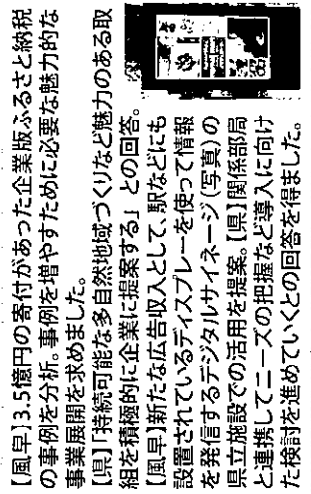 【風早】3.5億円の寄付があった企業版ふるさと納税
の事例を分析。事例を増やすために必要な魅力的な
事業展開を求めました。
【県】「持続可能な多自然地域づくりなど魅力のある取
組を積極的に企業に提案する」との回答。
【風早】新たな広告収入として、駅などにも
設置されているディスプレーを使って情報
を発信するデジタルサイネージ(写真)の
県立施設での活用を提案。【県】関係部局
と連携してニーズの把握など導入に向け
た検討を進めていくとの回答を得ました。